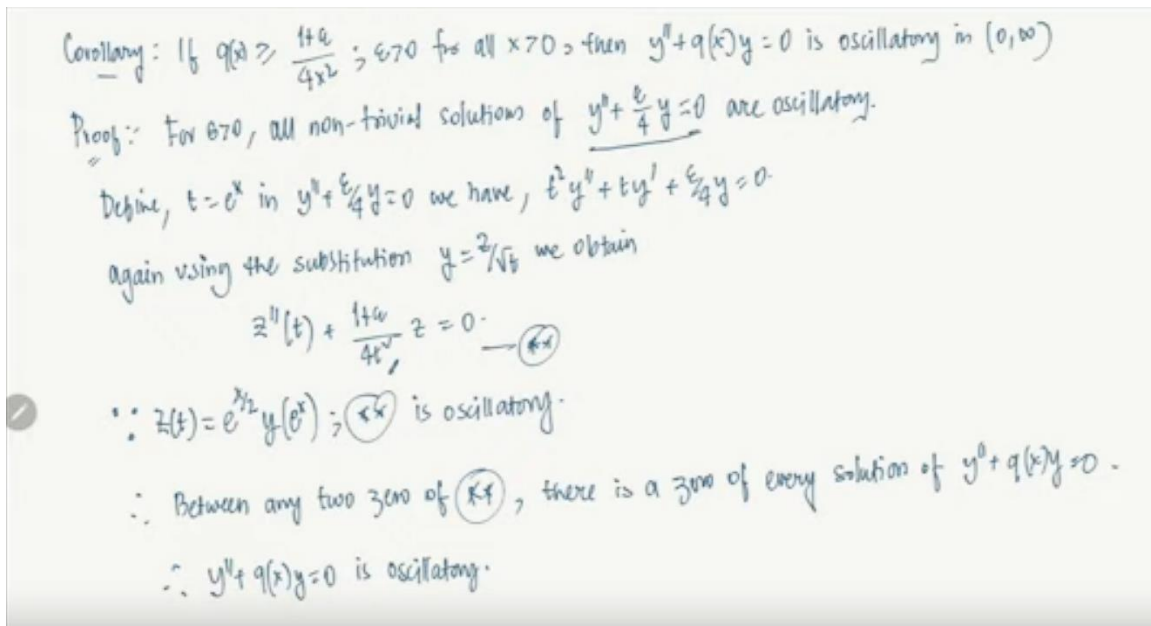 Corollary: If q(x) ≥ (1+ε)/(4x²) ; ε>0 for all x>0, then y''+q(x)y=0 is oscillatory in (0,∞)
Proof: For ε>0, all non-trivial solutions of y''+ ε/4 y=0 are oscillatory.
Define, t=eˣ in y''+ ε/4 y=0 we have, t²y''+ty'+ ε/4 y=0.
again using the substitution y=z/√t we obtain
z''(t) + (1+ε)/(4t²) z = 0. — (**)
∵ z(t)=e^(x/2) y(eˣ) ; (**) is oscillatory.
∴ Between any two zero of (**), there is a zero of every solution of y''+q(x)y=0.
∴ y''+q(x)y=0 is oscillatory.